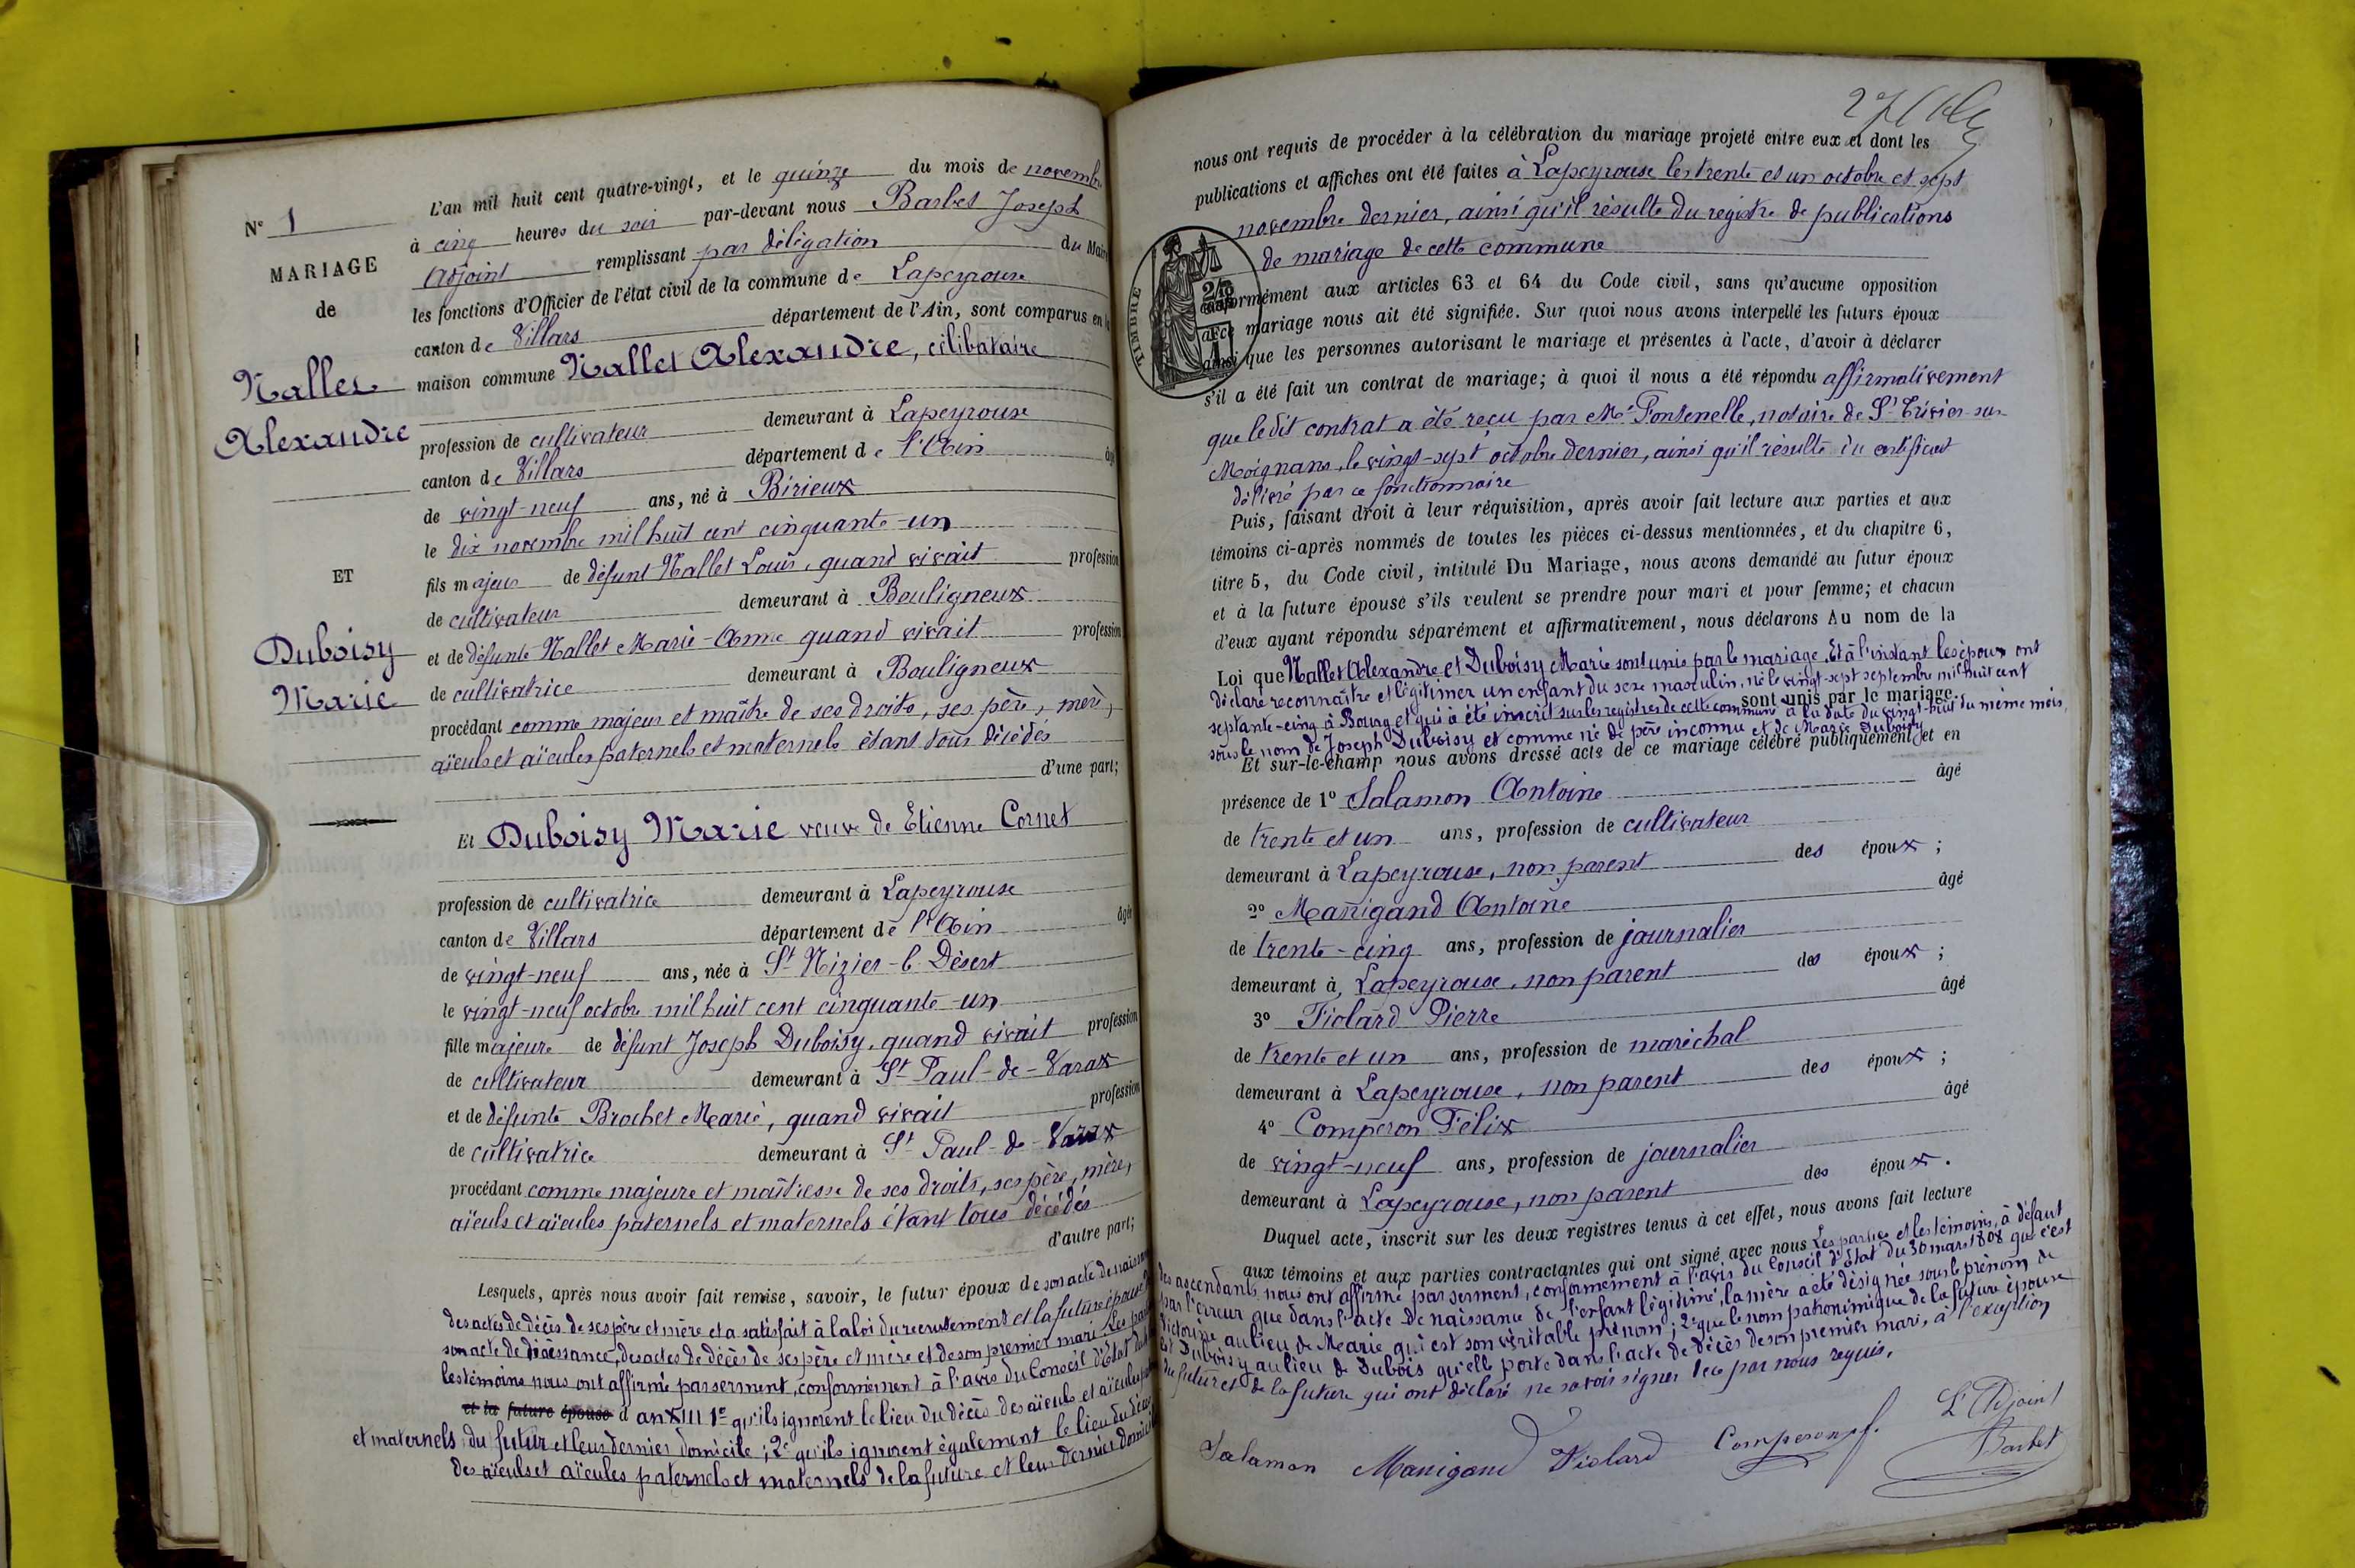 N° 1
MARIAGE
de
Nallet
Alexandre
ET
Duboisy
Marie
L'an mil huit cent quatre-vingt, et le quinze du mois de novembre
à cinq heures du soir par-devant nous Barbet Joseph
adjoint remplissant par délégation du Maire
les fonctions d'Officier de l'état civil de la commune de Lapeyrouse
canton de Villars département de l'Ain, sont comparus en la
maison commune Nallet Alexandre, célibataire
profession de cultivateur demeurant à Lapeyrouse
canton de Villars département de l'Ain âgé
de vingt-neuf ans, né à Birieux
le dix novembre mil huit cent cinquante-un
fils majeur de défunt Nallet Louis, quand vivait profession
de cultivateur demeurant à Bouligneux
et de défunte Nallet Marie-Anne quand vivait profession
de cultivatrice demeurant à Bouligneux
procédant comme majeur et maître de ses droits, ses père, mère,
aïeuls et aïeules paternels et maternels étant tous décédés
d'une part;
Et Duboisy Marie veuve de Etienne Cornet
profession de cultivatrice demeurant à Lapeyrouse
canton de Villars département de l'Ain âgée
de vingt-neuf ans, née à St Nizier-le-Désert
le vingt-neuf octobre mil huit cent cinquante-un
fille majeure de défunt Joseph Duboisy, quand vivait profession
de cultivateur demeurant à St Paul-de-Varax
et de défunte Brochet Marie, quand vivait profession
de cultivatrice demeurant à St Paul-de-Varax
procédant comme majeure et maîtresse de ses droits, ses père, mère,
aïeuls et aïeules paternels et maternels étant tous décédés
d'autre part;
Lesquels, après nous avoir fait remise, savoir, le futur époux de son acte de naissance
des actes de décès de ses père et mère et a satisfait à la loi du recrutement et la future épouse de
son acte de naissance, des actes de décès de ses père et mère et de son premier mari. Les parties
les témoins nous ont affirmé par serment, conformément à l'avis du Conseil d'Etat du
et la future épouse d an XIII 1° qu'ils ignorent le lieu du décès des aïeuls et aïeules
et maternels du futur et leur dernier domicile; 2° qu'ils ignorent également le lieu du décès
des aïeuls et aïeules paternels et maternels de la future et leur dernier domicile
nous ont requis de procéder à la célébration du mariage projeté entre eux et dont les
publications et affiches ont été faites à Lapeyrouse les trente et un octobre et sept
novembre dernier, ainsi qu'il résulte du registre de publications
de mariage de cette commune
TIMBRE
conformément aux articles 63 et 64 du Code civil, sans qu'aucune opposition
à ce mariage nous ait été signifiée. Sur quoi nous avons interpellé les futurs époux
ainsi que les personnes autorisant le mariage et présentes à l'acte, d'avoir à déclarer
s'il a été fait un contrat de mariage; à quoi il nous a été répondu affirmativement
que ledit contrat a été reçu par Me Fontenelle, notaire de St Trivier-sur-
Moignans, le vingt-sept octobre dernier, ainsi qu'il résulte du certificat
délivré par ce fonctionnaire
Puis, faisant droit à leur réquisition, après avoir fait lecture aux parties et aux
témoins ci-après nommés de toutes les pièces ci-dessus mentionnées, et du chapitre 6,
titre 5, du Code civil, intitulé Du Mariage, nous avons demandé au futur époux
et à la future épouse s'ils veulent se prendre pour mari et pour femme; et chacun
d'eux ayant répondu séparément et affirmativement, nous déclarons Au nom de la
Loi que Nallet Alexandre et Duboisy Marie sont unis par le mariage. Et à l'instant les époux ont
déclaré reconnaître et légitimer un enfant du sexe masculin, né le vingt-sept septembre mil huit cent
sont unis par le mariage.
septante-cinq à Bourg et qui a été inscrit sur les registres de cette commune à la date du vingt-huit du même mois,
sous le nom de Joseph Duboisy et comme né de père inconnu et de Marie Duboisy
Et sur-le-champ nous avons dressé acte de ce mariage célébré publiquement et en
présence de 1° Salamon Antoine âgé
de trente et un ans, profession de cultivateur
demeurant à Lapeyrouse, non parent des époux;
2° Manigand Antoine âgé
de trente-cinq ans, profession de journalier
demeurant à Lapeyrouse, non parent des époux;
3° Violard Pierre âgé
de trente et un ans, profession de maréchal
demeurant à Lapeyrouse, non parent des époux;
4° Comperon Félix âgé
de vingt-neuf ans, profession de journalier
demeurant à Lapeyrouse, non parent des époux.
Duquel acte, inscrit sur les deux registres tenus à cet effet, nous avons fait lecture
aux témoins et aux parties contractantes qui ont signé avec nous Les parties et les témoins, à défaut
des ascendants, nous ont affirmé par serment, conformément à l'avis du Conseil d'Etat du 30 mars 1808 que c'est
par l'erreur que dans l'acte de naissance de l'enfant légitimé, la mère a été désignée sous le prénom de
Victorine au lieu de Marie qui est son véritable prénom; 2° que le nom patronimique de la future épouse
est Duboisy au lieu de Dubois qu'elle porte dans l'acte de décès de son premier mari, à l'exception
du futur et de la future qui ont déclaré ne savoir signer de ce par nous requis.
Salamon Manigand Violard Comperon f. L'Adjoint
Barbet